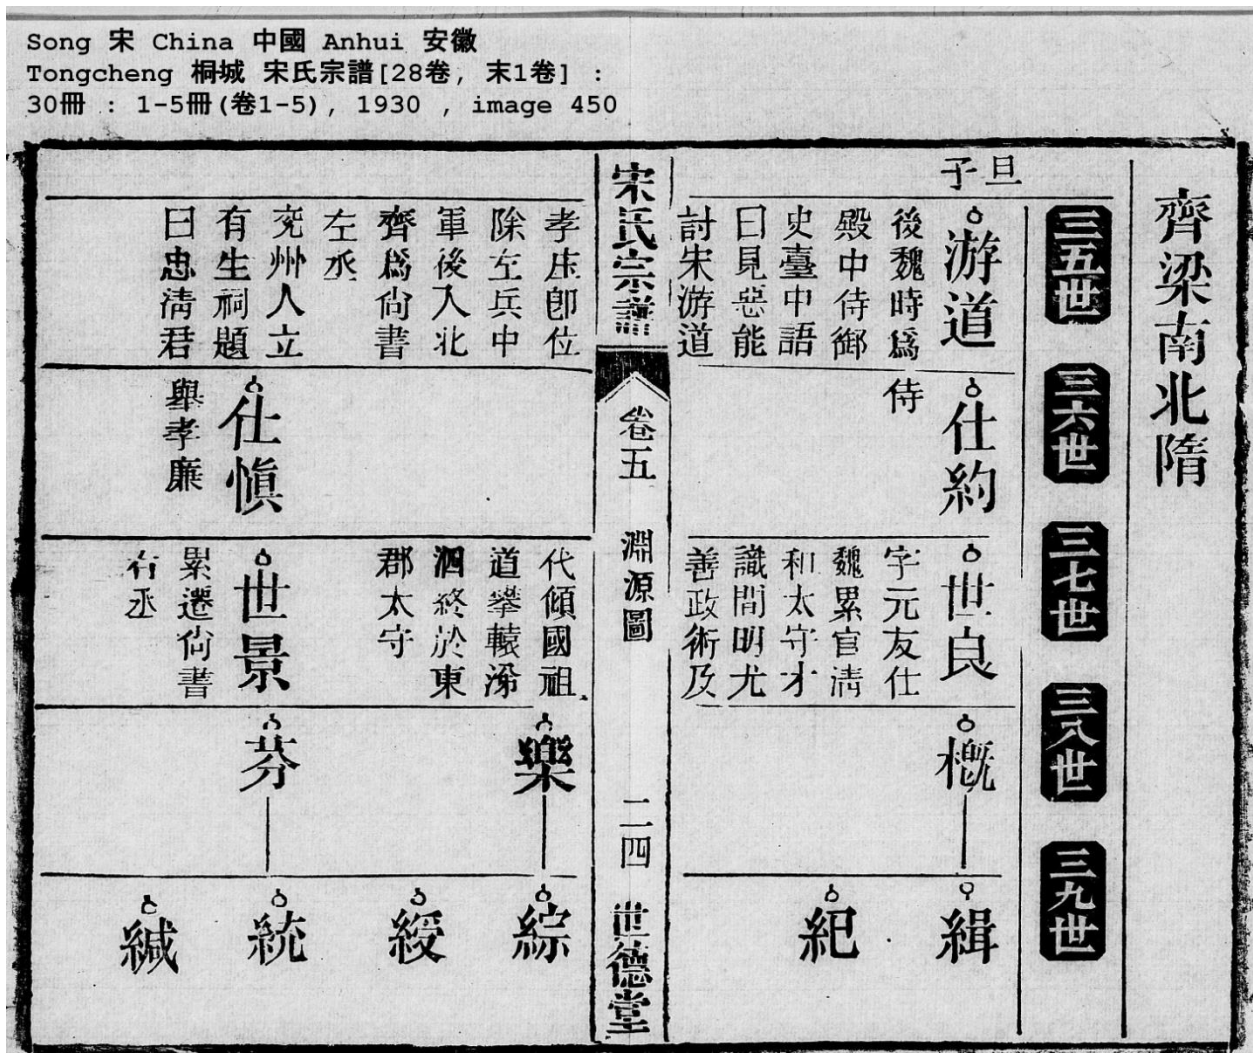 Song 宋 China 中國 Anhui 安徽
Tongcheng 桐城 宋氏宗譜[28卷, 末1卷] :
30冊 : 1-5冊(卷1-5), 1930 , image 450
齊梁南北隋
三五世
三六世
三七世
三八世
三九世
旦子
游道
後魏時爲侍
殿中侍御
史臺中語
曰見惡能
討宋游道
仕約
世良
字元友仕
魏累官淸
和太守才
識間明尤
善政術及
概
緝
紀
宋氏宗譜
卷五
淵源圖
二四
世德堂
孝庄卽位
除左兵中
軍後入北
齊爲尙書
左丞
兖州人立
有生祠題
曰忠淸君
仕愼
舉孝廉
代傾國祖
道攀轅涕
泗終於東
郡太守
世景
累遷尙書
右丞
樂
芬
綜
綬
統
緘